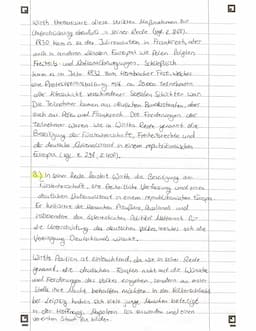 Wirth thematisiert diese strikten Maßnahmen zur
Unterdrückung ebenfalls in seiner Rede (vgl. Z.
1830 kam es zu der Julirevolution in Frankreich, aber
auch in anderen Staaten Europas wie Polen folgten
Freiheits- und Nationalbewegungen. Schließlich
kam es im Jahr 1832 zum Hambacher Fest, welches
eine Protestveranstaltung mit ca. 20000 Teilnehmern
aller Altersstufen verschiedener sozialer Schichten war.
Die Teilnehmer kamen aus deutschen Bundesstaaten, aber
auch aus Polen und Frankreich. Die Forderungen der
Teilnehmer waren wie in Wirths Rede genannt die
Beseitigung der Fürstenherrschaft, Freiheitsrechte und
ein deutscher Nationalstaat in einem republikanischen
Europa (vgl. Z.
In seiner Rede fordert Wirth die Beseitigung der
Fürstenherrschaft, eine freiheitliche Verfassung und einen
deutschen Nationalstaat in einem republikanischen Europa.
Er kritisiert die Monarchen Preußens, Russland und
insbesondere die österreichische Politik für
die Unterdrückung des deutschen Volkes, welches sich die
Vereinigung Deutschlands wünscht.
Wirths Position ist entsprechend, da wie in seiner Rede
genannt, die deutschen Fürsten nicht auf die Wünsche
und Forderungen des Volkes eingehen, sondern an erster
Stelle ihre Macht behalten möchten. In der Völkerschlacht
bei Leipzig haben sich viele junge Männer beteiligt
in der Hoffnung, Napoleon zu und einen
vereinten Staat zu bilden.